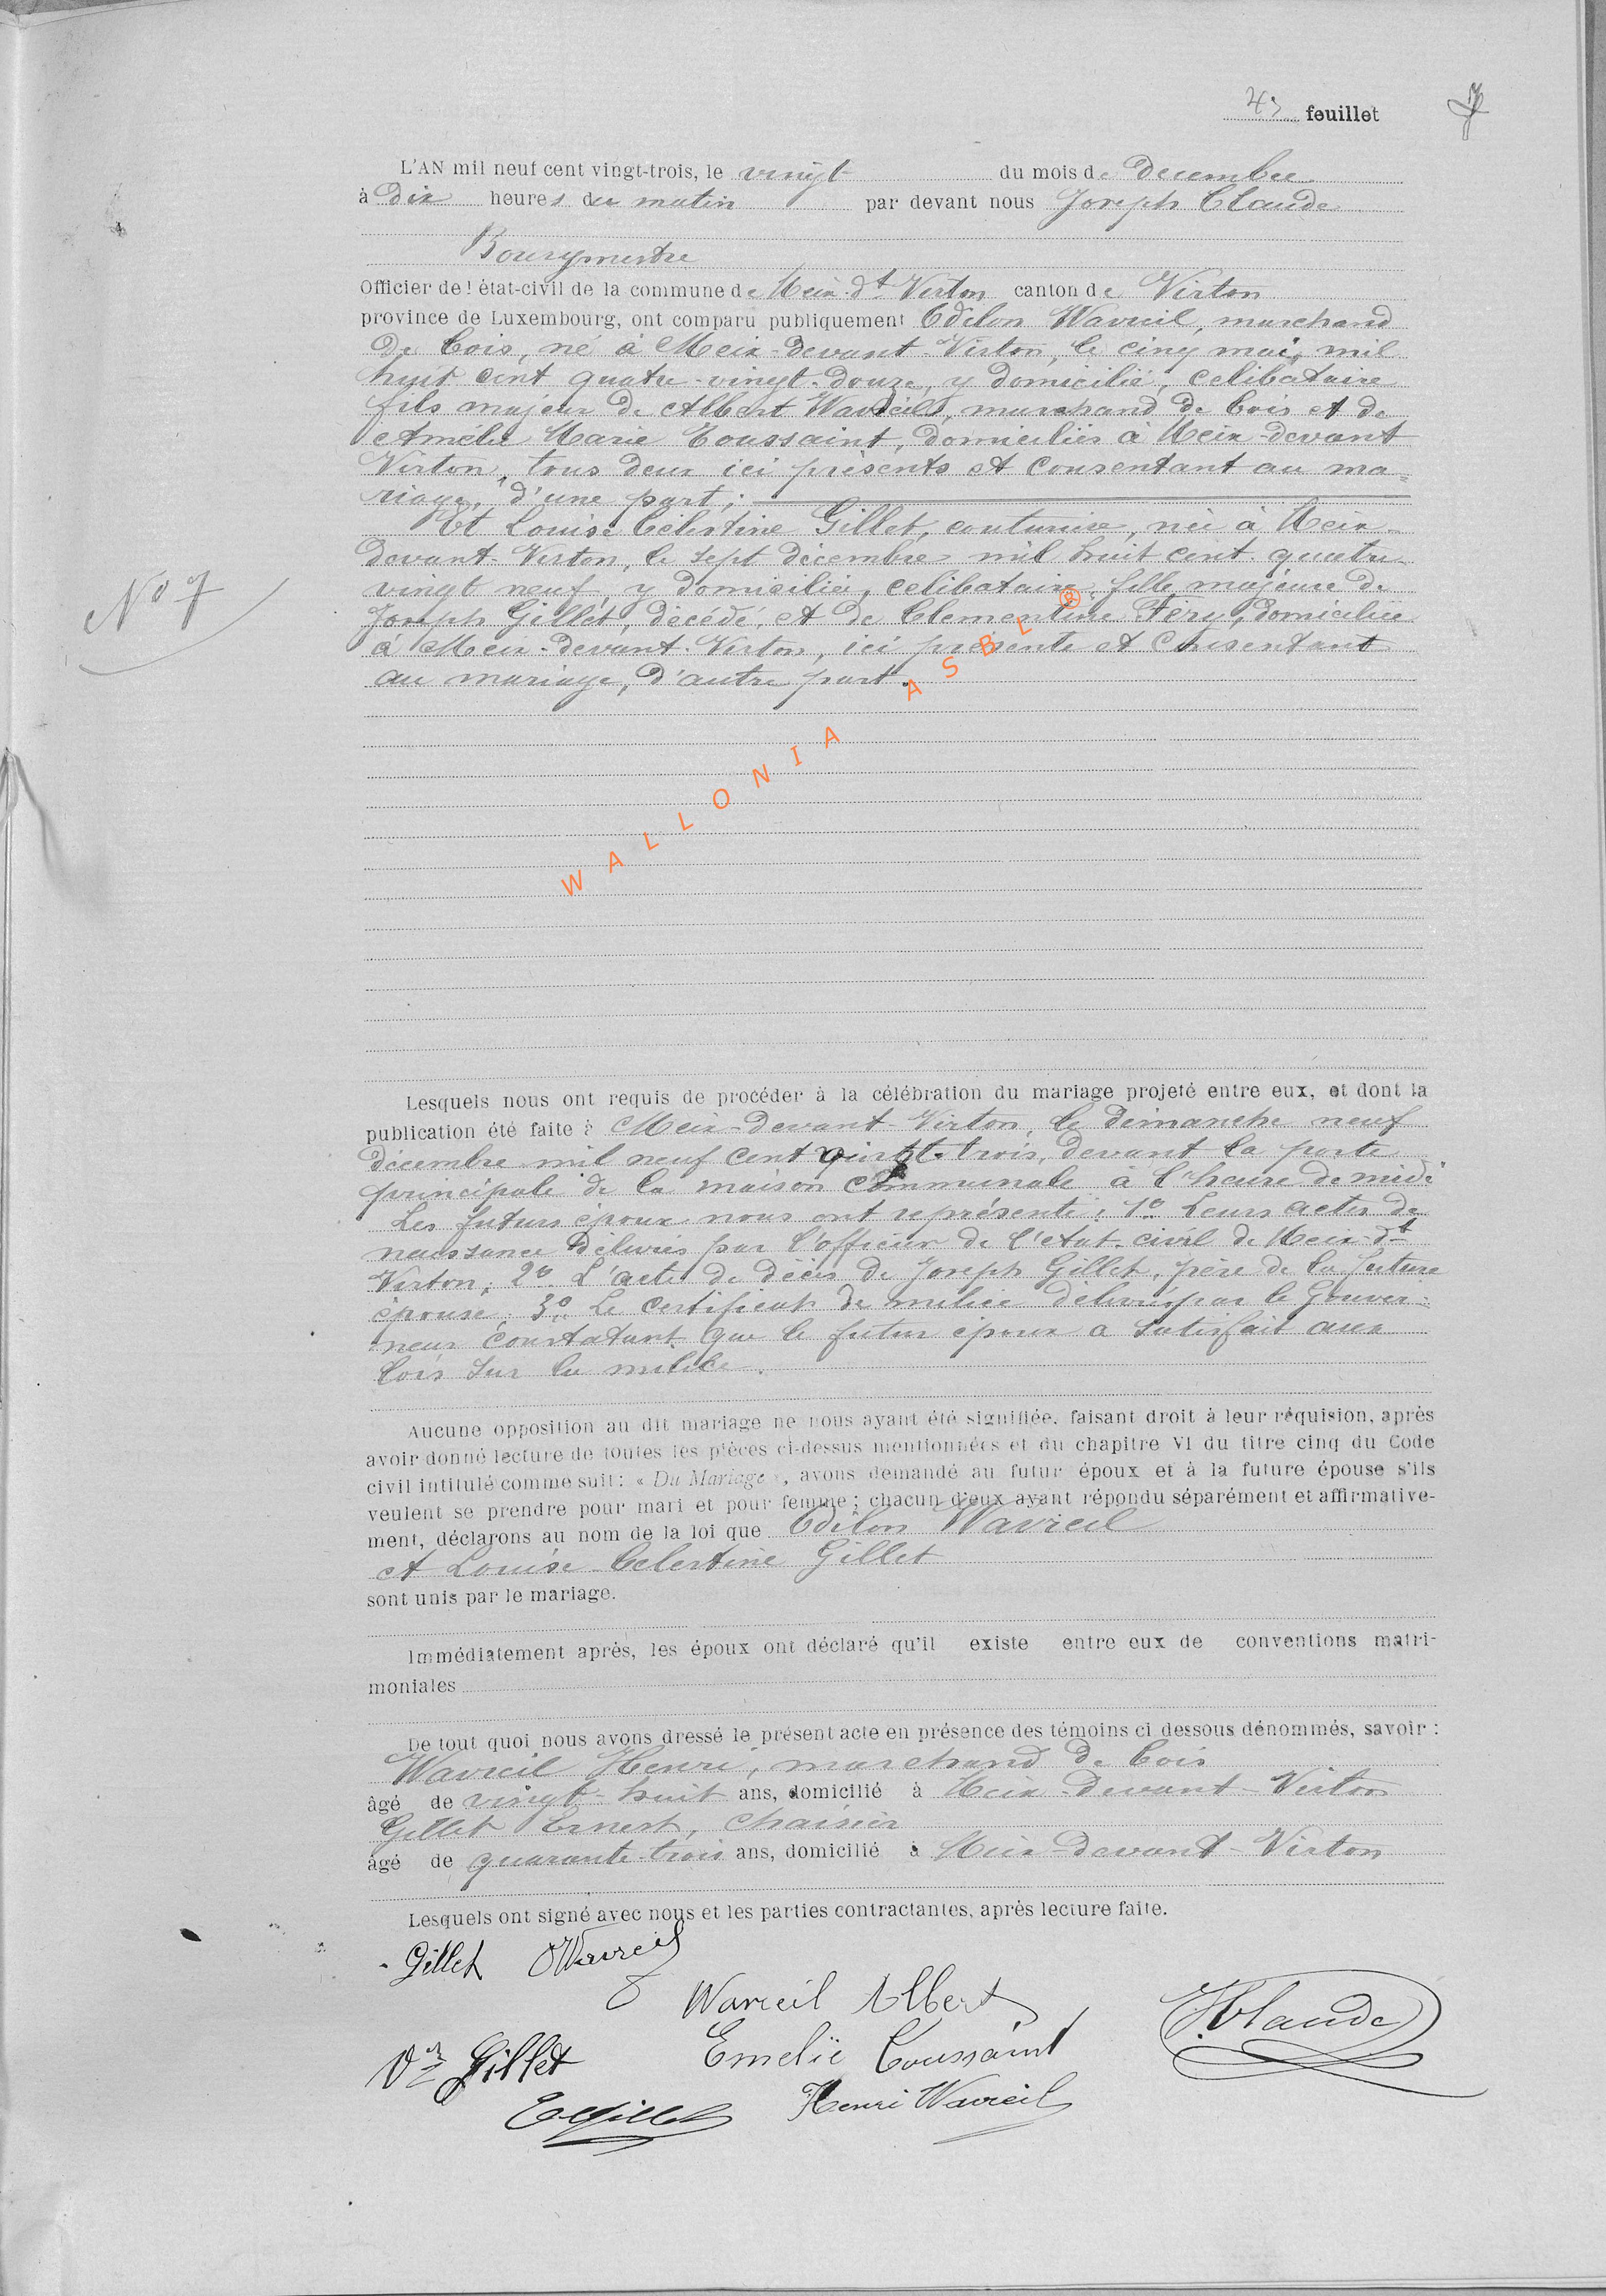 43 feuillet
L'AN mil neuf cent vingt-trois, le vingt du mois de decembre
à dix heures du matin par devant nous Joseph Claude
Bourgmestre
Officier de l'état-civil de la commune de Meix-dt Virton canton de Virton
province de Luxembourg, ont comparu publiquement Odilon Wavreil, marchand
de bois, né à Meix-devant-Virton, le cinq mai, mil
huit cent quatre-vingt-douze, y domicilié, celibataire
fils majeur de Albert Wavreil, marchand de bois et de
Amélie Marie Toussaint, domiciliés à Meix-devant
Virton, tous deux ici présents et consentant au ma=
riage, d'une part;
Et Louise Célestine Gillet, couturière, née à Meix-
devant-Virton, le sept décembre mil huit cent quatre
vingt neuf, y domiciliée, celibataire, fille majeure de
Joseph Gillet, décédé, et de Clementine Féry, domiciliée
à Meix-devant-Virton, ici présente et consentant
au mariage, d'autre part.
No 7
WALLONIA ASBL ®
Lesquels nous ont requis de procéder à la célébration du mariage projeté entre eux, et dont la
publication été faite à Meix-devant-Virton, le dimanche neuf
décembre mil neuf cent vingt-trois, devant la porte
principale de la maison communale à l'heure de midi
Les futurs époux nous ont représenté: 1o Leurs actes de
naissance délivrés par l'officier de l'état-civil de Meix-dt
Virton; 2o L'acte de décès de Joseph Gillet, père de la future
épouse; 3o Le certificat de milice délivré par le Gouver=
neur constatant que le futur époux a satisfait aux
lois sur la milice.
Aucune opposition au dit mariage ne nous ayant été signifiée, faisant droit à leur réquision, après
avoir donné lecture de toutes les pièces ci-dessus mentionnées et du chapitre VI du titre cinq du Code
civil intitulé comme suit: « Du Mariage », avons demandé au futur époux et à la future épouse s'ils
veulent se prendre pour mari et pour femme; chacun d'eux ayant répondu séparément et affirmative-
ment, déclarons au nom de la loi que Odilon Wavreil
et Louise Celestine Gillet
sont unis par le mariage.
Immédiatement après, les époux ont déclaré qu'il existe entre eux de conventions matri-
moniales
De tout quoi nous avons dressé le présent acte en présence des témoins ci dessous dénommés, savoir :
Wavreil Henri, marchand de bois
âgé de vingt-huit ans, domicilié à Meix-devant-Virton
Gillet Ernest, chaisier
âgé de quarante-trois ans, domicilié à Meix-devant-Virton
Lesquels ont signé avec nous et les parties contractantes, après lecture faite.
Gillet OWavreil
Wavreil Albert
JClaude
Vve Gillet Emelie Toussaint
EGillet Henri Wavreil